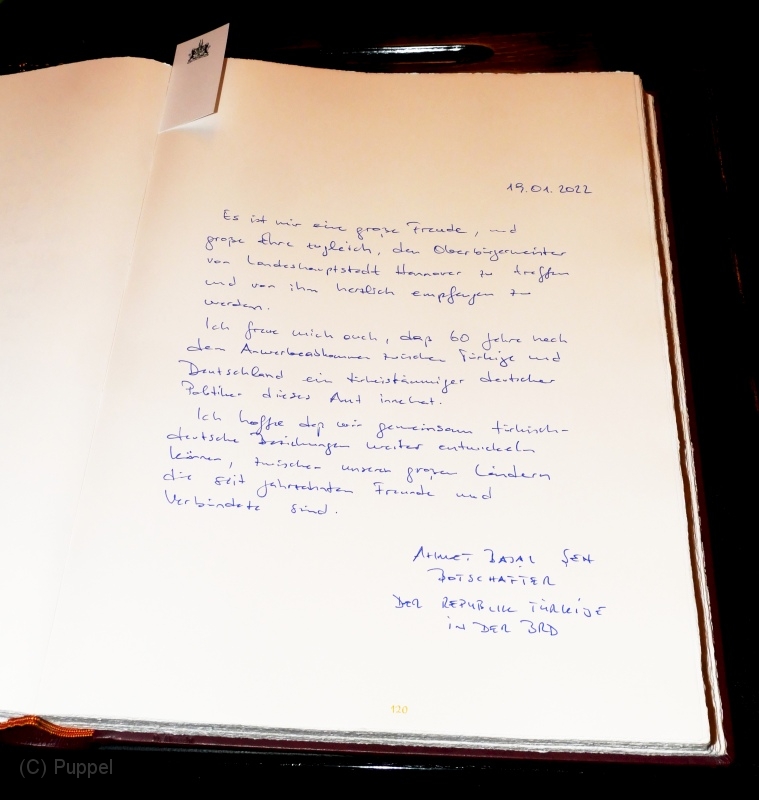 19.01.2022
Es ist mir eine große Freude, und
große Ehre zugleich, den Oberbürgermeister
von Landeshauptstadt Hannover zu treffen
und von ihm herzlich empfangen zu
werden.
Ich freue mich auch, daß 60 Jahre nach
dem Anwerbeabkommen zwischen Türkiye und
Deutschland ein türkeistämmiger deutscher
Politiker dieses Amt innehat.
Ich hoffe daß wir gemeinsam türkisch-
deutsche Beziehungen weiter entwickeln
können, zwischen unseren großen Ländern
die seit Jahrzehnten Freunde und
Verbündete sind.
AHMET BAŞAR ŞEN
BOTSCHAFTER
DER REPUBLIK TÜRKIYE
IN DER BRD
120
(C) Puppel